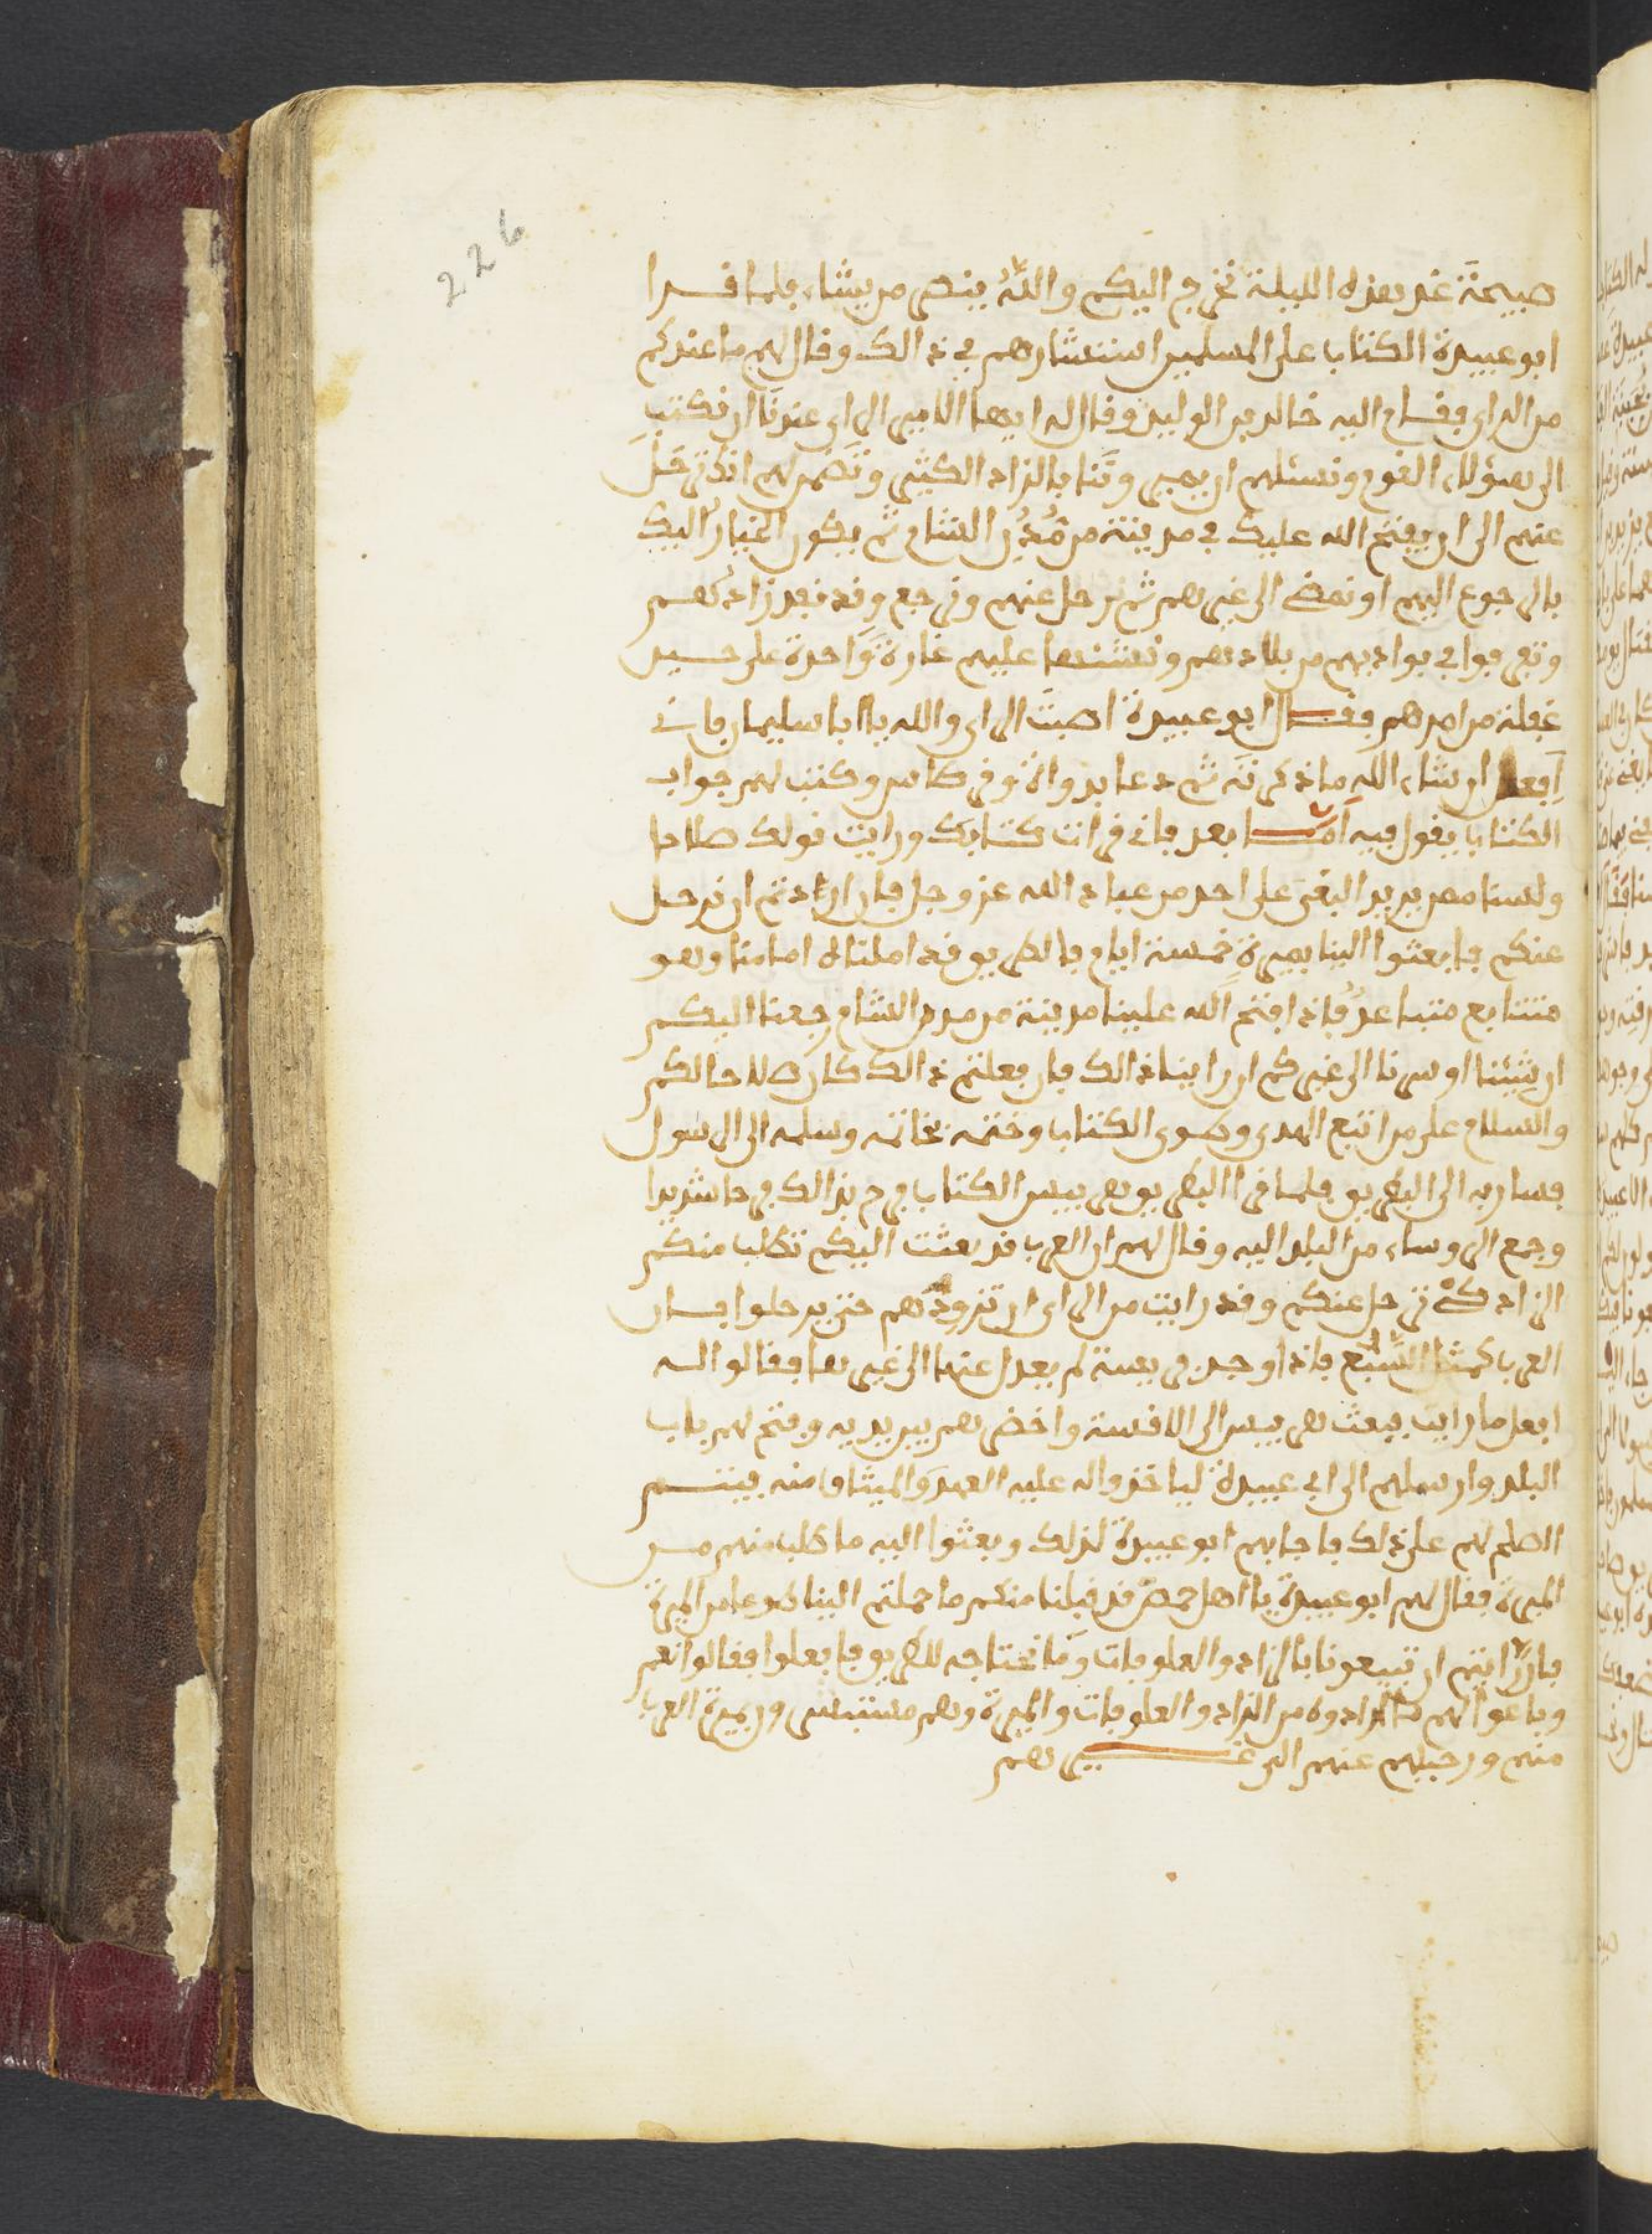 226
صبيحَةَ غد هذه الليلة نخرج اليكم واللهُ ينصر من يشاء فلما قرا
ابو عبيدة الكتاب على المسلمين استشارهم في ذالك وقال لهم ما عندكم
من الراي فقام اليه خالد بن الوليد وقال له ايها الامير الراي عندنا ان نكتب
الى هؤلاء القوم ونسئلهم ان يميرونا بالزاد الكثير ونضمن لهم انك ترحل
عنهم الى ان يفتح الله عليك في مدينة من مُدُنِ الشام ثم يكون الخيار اليك
بالرجوع اليهم او نمضي الى غيرهم ثم نرحل عنهم ونرجع وقد نفد زادهم
وتفرقوا في بواديهم من بلادهم ونشنها عليهم غارة واحدة على حين
غفلة من امرهم فقال ابو عبيدة اصبت الراي والله يا ابا سليمان فاني
افعل ان شاء الله ما ذكرته ثم دعا بدواة وقرطاس وكتب لهم جواب
الكتاب يقول فيه اما بعد فاني قرات كتابك ورايت قولك صلاحا
ولسنا ممن يريد البغي على احد من عباد الله عز وجل فان اردتم ان نرحل
عنكم فابعثوا الينا بميرة خمسة ايام فالطريق قد املنا له امامنا وهو
متتابع متباعد فاذا فتح الله علينا مدينة من مدن الشام رجعنا اليكم
ان شئنا او سرنا الى غيركم ان راينا ذالك فان فعلتم ذالك كان صلاحا لكم
والسلام على من اتبع الهدى وطوى الكتاب وختمه بخاتمه وسلمه الى الرسول
فسار به الى البطريق فلما قرا البطريق هربيس الكتاب فرح بذالك فرحا شديدا
وجمع الروساء من البلد اليه وقال لهم ان العرب قد بعثت اليكم تطلب منكم
الزاد كي ترحل عنكم وقد رايت من الراي ان تزودهم حتى يرحلوا فان
العرب كمثل السَّبُع فاذا وجد فريسة لم يعدل عنها الى غيرها فقالوا له
افعل ما رايت فبعث هربيس الى الاقسة واحضرهم بين يديه وفتح لهم باب
البلد وارسلهم الى ابي عبيدة لياخذوا له عليه العهد والميثاق منه فيتم
الصلح لهم على ذلك فاجابهم ابو عبيدة لذلك وبعثوا اليه ما طلب منهم من
الميرة فقال لهم ابو عبيدة يا اهل حمص قد قبلنا منكم ما حملتم الينا طوعا من الميرة
فان رايتم ان تبيعونا بالزاد والعلوفات وما نحتاجه للطريق فافعلوا فقالوا نعم
وباعوا لهم ما ارادوه من الزاد والعلوفات والميرة وهم مستبشرون بميرة العرب
منهم ورحيلهم عنهم الى غيرهم